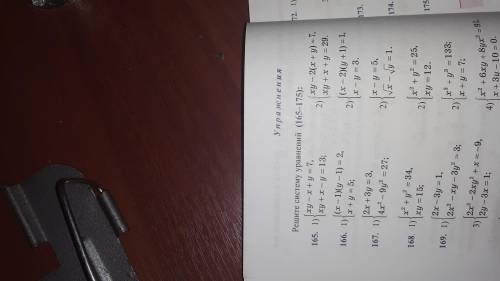 Упражнения
Решите систему уравнений (165–175):
165. 1) { xy – x + y = 7, xy + x – y = 13; 2) { xy – 2(x + y) = 7, xy + x + y = 29.
166. 1) { (x – 1)(y – 1) = 2, x + y = 5; 2) { (x – 2)(y + 1) = 1, x – y = 3.
167. 1) { 2x + 3y = 3, 4x² – 9y² = 27; 2) { x – y = 5, √x – √y = 1.
168. 1) { x² + y² = 34, xy = 15; 2) { x² + y² = 25, xy = 12.
169. 1) { 2x – 3y = 1, 2x² – xy – 3y² = 3; 2) { x³ + y³ = 133; x + y = 7;
3) { 2x² – 2xy² + x = –9, 2y – 3x = 1; 4) { x² + 6xy + 8y² = 91, x + 3y – 10 = 0.
172.
173.
174.
175